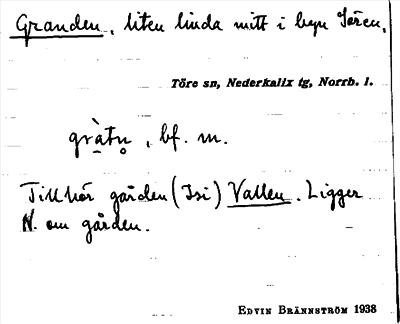 Granden, liten linda mitt i byn Tören.
Töre sn, Nederkalix tg, Norrb. l.
gràtn̥, bf. m.
Tillhör gården (Isi) Vallen. Ligger
N. om gården.
EDVIN BRÄNNSTRÖM 1938